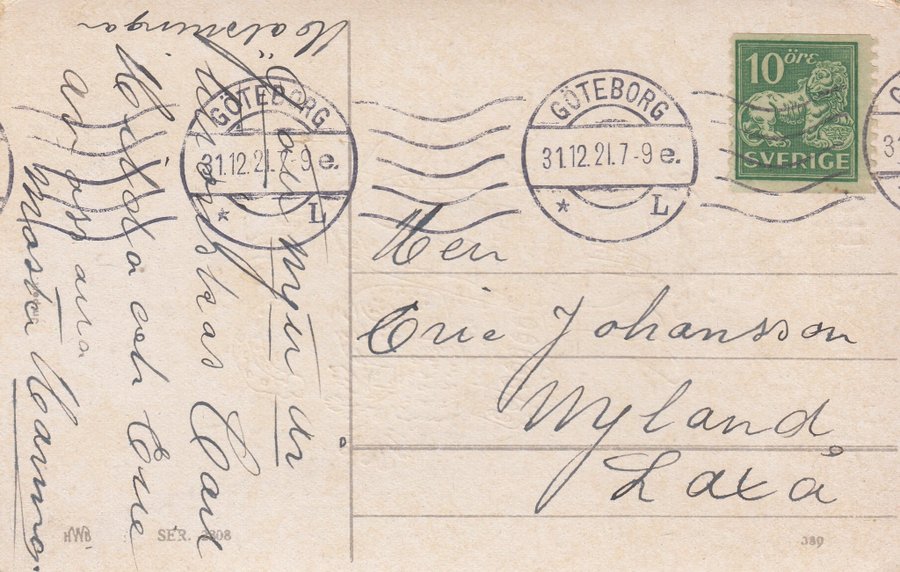 Gott nytt år
tillönskas Carl
Hilda och Eric
av oss alla
Moster Hanna.
Hälsningar
GÖTEBORG
31.12.21.7-9 e.
* L
GÖTEBORG
31.12.21.7-9 e.
* L
10 öre
SVERIGE
Herr
Eric Johansson
Nyland
Laxå
HWB SER.
389